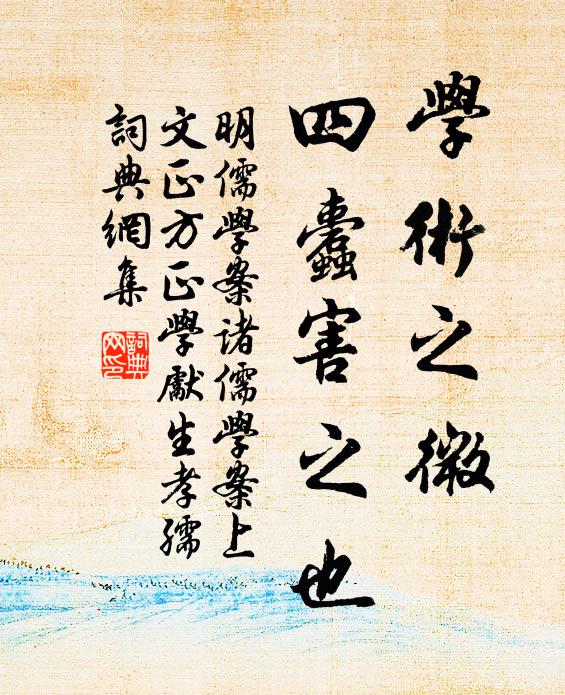 學術之微
四蠹害之也
明儒學案諸儒學案上
文正方正學獻生孝孺
詞典網集
詞典